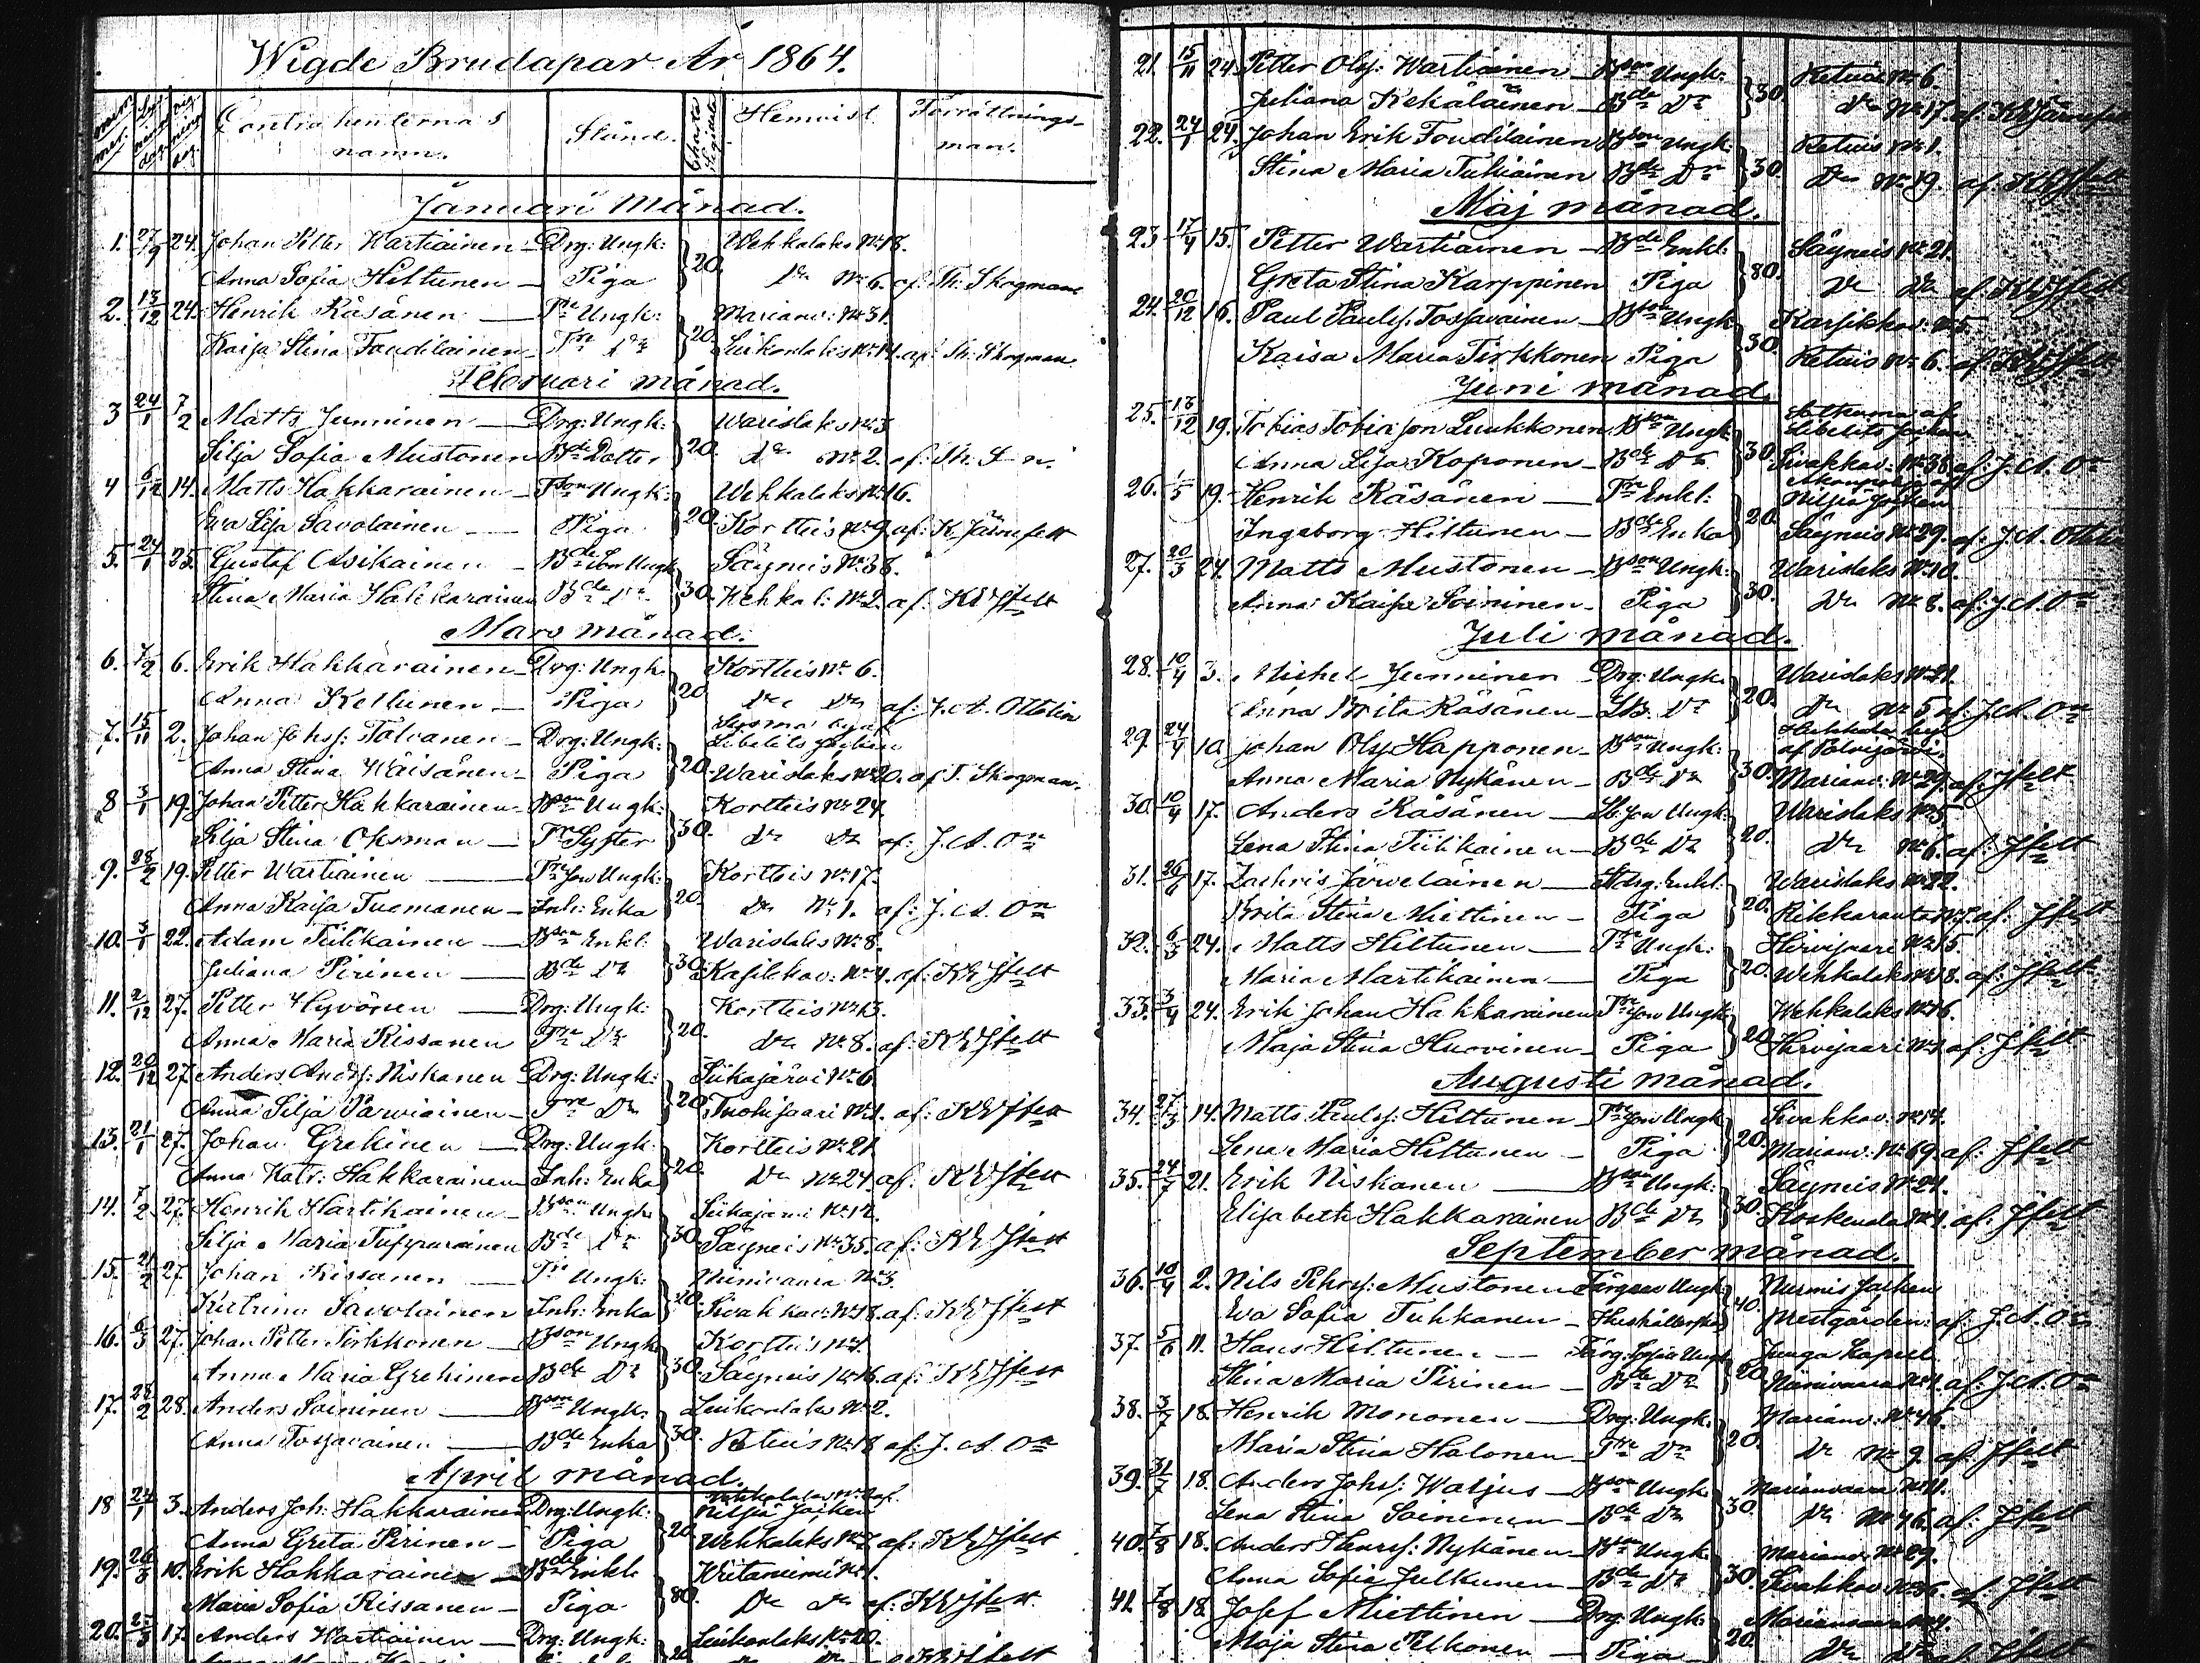 Wigde Brudapar År 1864.
Contrahenternas namn. Stånd. Charta Sigillata Hemvist. Förrättnings-man.
Januari månad.
1. 27/9 24. Johan Petter Wartiainen - Drg: Ungk: Wehkalaks No 18.
Anna Sofia Hiltunen - Piga 20. Do No 6. af: Th: Skogman
2. 13/12 24. Henrik Räsänen Ungk: Marianv: No 31.
Kaisa Stina Toudilainen 20. Luikonlaks No 14. af: Th: Skogman
Februari månad.
3 24/1 7/2 Matts Junninen - Drg: Ungk: Warislaks No 3
Silja Sofia Mustonen Bde Dotter 20. Do No 2. af: Th. S-n.
4 6/12 14. Matts Hakkarainen - Tson Ungk: Wehkalaks No 16.
Eva Lisa Savolainen - Piga 20. Kortteis No 9. af: K. Järnefelt
5. 24/1 25. Gustaf Asikainen Säyneis No 38.
Stina Maria Hakkarainen Bde Dr 30. Wehkal: No 2. af: KEJfelt
Mars månad.
6. 7/2 6. Erik Hakkarainen - Drg: Ungk: Kortteis No 6.
Anna Kettunen - Piga 20. Do Do af: J. A. Ottelin
7. 15/11 2. Johan Johsf: Tolvanen - Drg: Ungk: Libelits Socken
Anna Stina Wäisänen - Piga 20. Warislaks No 20. af T. Skogman.
8 3/1 19. Johan Petter Hakkarainen - Bson Ungk: Kortteis No 24.
Silja Stina Oksman - Tr Syster 30. Do Do af: J. A. On
9. 28/2 19. Petter Wartiainen Tre Son Ungk: Kortteis No 17.
Anna Kaisa Tuomanen - Inh: Enka 20. Do No 1. af: J. A. On
10. 3/1 22. Adam Tiilikainen - Bson Enkl: Warislaks No 8.
Juliana Pirinen - Bde Dr 30. No 4. af: KEJfelt
11. 2/12 27. Petter Hyvönen - Drg: Ungk: Kortteis No 13.
Anna Maria Rissanen Tre Dr 20. Do No 8. af: KEJfelt
12. 20/12 27. Anders Andsf: Niskanen Drg: Ungk: Siikajärvi No 6
Anna Silja Parviainen - Tre Dr 20. Tuohisaari No 1. af: KEJfelt
13. 21/1 27. Johan Grekinen - Drg: Ungk: Kortteis No 21
Anna Katr: Hakkarainen Inh: Enka 20. Do No 24. af: KEJfelt
14. 7/2 27. Henrik Hartikainen - Bson Ungk: Siikajärvi No 12.
Silja Maria Tuppurainen Bde Dr 30. Säyneis No 35. af: KEJfelt
15. 21/2 27. Johan Rissanen - Ungk: Niinivaara No 3.
Katrina Savolainen Inh: Enka 20. Sivakkav: No 18. af: KEJfelt
16. 6/3 27. Johan Petter Pirhkonen - Bson Ungk: Kortteis No 1.
Anna Maria Grekinen Bde Dr 30. Säyneis No 16. af: KEJfelt
17. 28/2 28. Anders Soininen - Bson Ungk: Luikonlaks No 2.
Anna Tossavainen - Bde Enka 30. Retuis No 18 af: J. A. On
April månad.
18 24/1 3. Anders Joh: Hakkarainen Drg: Ungk: Nilsiä Socken
Anna Greta Pirinen - Piga 20. Wehkalaks No 7. af: KEJfelt
19. 10. Erik Hakkarainen - Enkl: Kiitaniemi No 1.
Maria Sofia Rissanen - Piga 80. Do Do af: KEJfelt
20. 17. Anders Wartiainen - Drg: Ungk: Luikonlaks No 20.
21. 15/11 24. Petter Olsf: Wartiainen - Bson Ungk: Retuis No 6.
Juliana Kekäläinen - Bde Dr 30. Do No 17. af: KEJärnefelt
22. 24/1 24. Johan Erik Toudilainen Bson Ungk: Retuis No 1.
Stina Maria Tukiainen Bde Dr 30. Do No 19. af: KEJfelt
Maj månad.
23. 17/4 15. Petter Wartiainen - Bde Enkl: Säyneis No 21.
Greta Stina Karppinen Piga 80. Do Do af: KEJfelt
24. 20/12 16. Paul Paulsf: Tossavainen - Bson Ungk: Karsikkov: No 5.
Kaisa Maria Pirkkonen Piga 30. Retuis No 6. af: KEJfelt
Juni månad.
25. 13/12 19. Tobias Tobiasson Luukkonen Bson Ungk: Libelits Socken
Anna Lisa Koponen - Bde Dr 30. Sivakkav: No 38 af: J. A. On
26. 1/5 19. Henrik Räsänen - Tre Enkl: Nilsiä Socken
Ingeborg Hiltunen - Bde Enka 20. Säyneis No 29. af: J. A. Ottelin
27. 20/3 24. Matts Mustonen - Bson Ungk: Warislaks No 10.
Anna Kaisa Soininen - Piga 30. Do No 8. af: J. A. On
Juli månad.
28. 10/4 3. Michel Junninen Drg: Ungk: Warislaks No 21.
Anna Brita Räsänen - Dr 20. Do No 5 af: J. A. On
29. 24/4 10. Johan Olsf Happonen - Bson Ungk: af Polvijärvi.
Anna Maria Nykänen - Bde Dr 30. Marianv: No 29. af: Jfelt
30. 10/4 17. Anders Räsänen - Son Ungk: Warislaks No 5.
Lena Stina Tiilikainen - Bde Dr 20. Do No 6. af: Jfelt
31. 26/6 17. Zachris Järveläinen - Enkl: Warislaks No 22.
Brita Stina Miettinen - Piga 20. Rikkaranta No 7. af: Jfelt
32. 6/3 24. Matts Hiltunen - Tre Ungk: Hirvisaari No 15.
Maria Martikainen - Piga 20. Wehkalaks No 8. af: Jfelt
33. 3/4 24. Erik Johan Hakkarainen Tre Son Ungk: Wehkalaks No 16.
Maja Stina Huovinen - Piga 20. Hirvisaari No 1 af: Jfelt
Augusti månad.
34. 27/3 14. Matts Paulsf: Hiltunen - Tre Son Ungk: Sivakkav: No 14.
Lena Maria Hiltunen - Piga 20. Marianv: No 69. af: Jfelt
35. 24/7 21. Erik Niskanen - Bson Ungk: Säyneis No 24.
Elisabeth Hakkarainen Bde Dr 30. Koskenala No 4. af: Jfelt
September månad.
36. 10/4 2. Nils Pehrsf: Mustonen Ungk: Nurmis Socken
Eva Sofia Tuhkanen - Hushållerska 40. Prestgården: af: J. A. On
37. 5/6 11. Hans Hiltunen - Junga Kapell
Stina Maria Pirinen - Bde Dr 20. Niinivaara No 4. af: J. A. On
38. 3/7 18. Henrik Mononen - Drg: Ungk: Marianv: No 46.
Maria Stina Halonen - Tre Dr 20. Do No 9. af: Jfelt
39. 31/7 18. Anders Johsf: Watjus - Bson Ungk: Marianvaara No 11.
Lena Stina Soininen - Bde Dr 30. Do No 46. af: Jfelt
40. 7/8 18. Anders Henrsf: Nykänen - Bson Ungk: Marianv: No 29.
Anna Sofia Julkunen - Bde Dr 30. Sivakkav: No 36. af: Jfelt
41 7/8 18. Josef Miettinen - Drg: Ungk: Marianvaara No 4.
Maja Stina Pelkonen - Piga 20. Do Do af: Jfelt